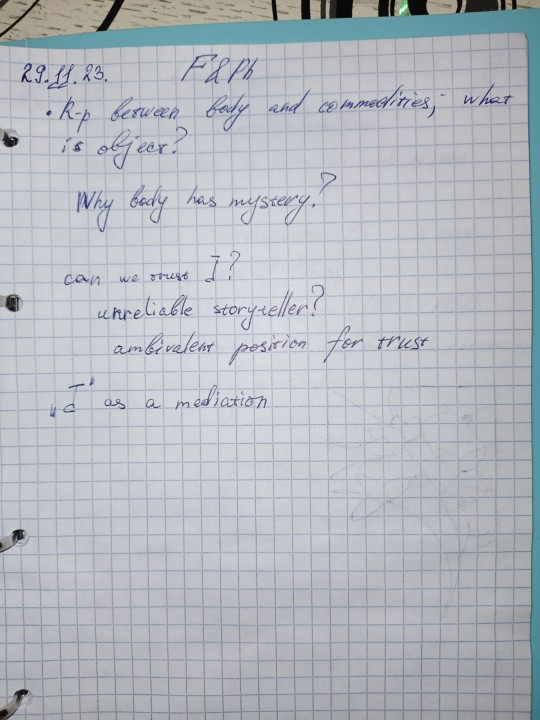 29.11.23. F&Ph
• R-p between body and commodities; what
is object?
Why body has mystery?
can we trust I?
unreliable storyteller?
ambivalent position for trust
„I" as a mediation